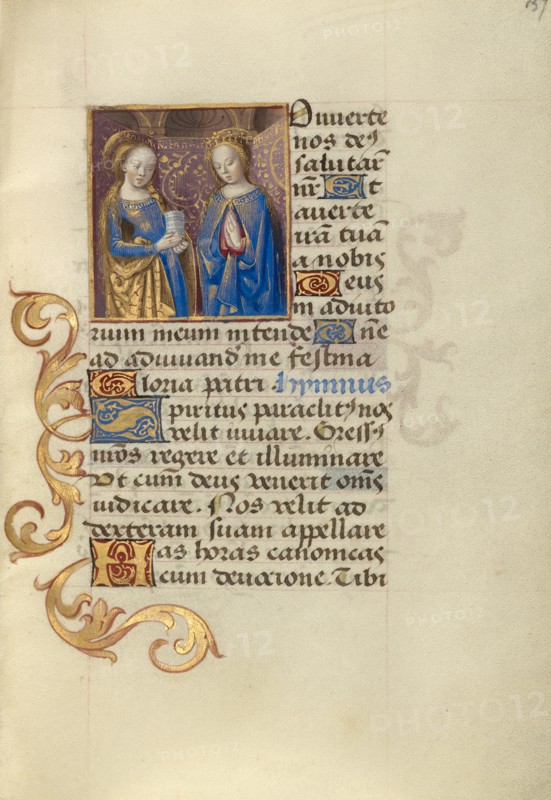 157
Onuerte
nos de9
salutar̄
nr̄ Et
auerte
irā tuā
a nobis
Deus
in adiuto
rium meum intende Dn̄e
ad adiuuand̄ me festina
Gloria patri. hymnus
Spiritus paraclit9 nos
velit iuuare. Gress9
nr̄os regere et illuminare
Vt cum̄ deus venerit om̄s
iudicare. Nos velit ad
dexteram suam appellare
Has horas canonicas
cum deuocione. Tibi